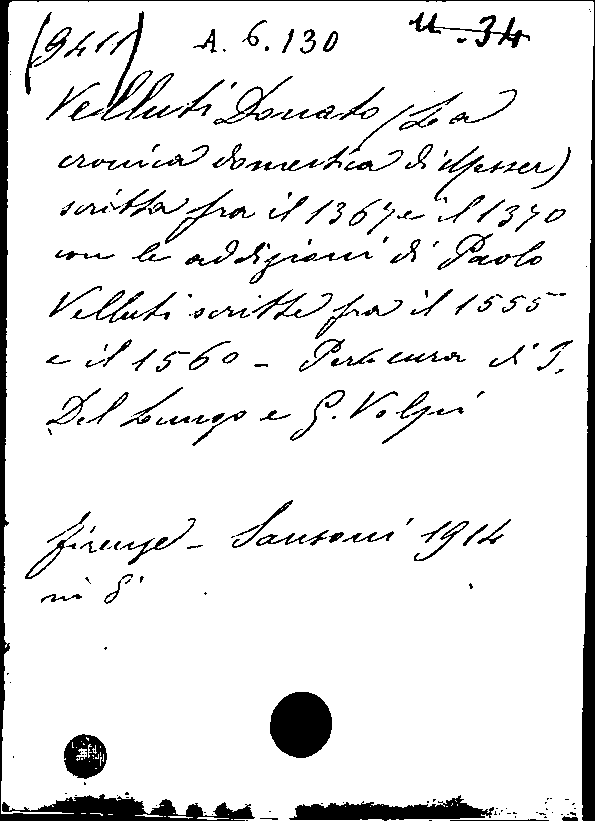 (9411) A. 6. 130 11.34
Velluti Donato (La
cronica domestica di Messer)
scritta fra il 1367 e il 1370
con le addizioni di Paolo
Velluti scritte fra il 1555
e il 1560 - Per cura di I.
Del Lungo e G. Volpi
Firenze - Sansoni 1914
in 8°